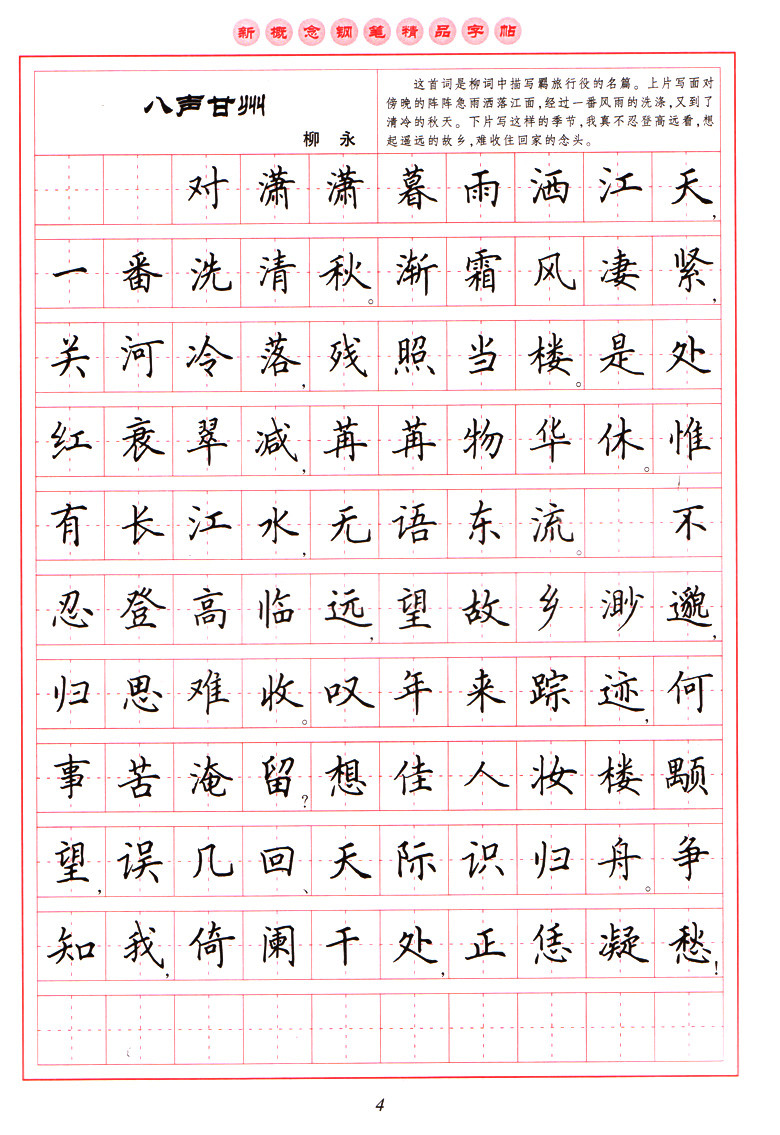 新概念钢笔精品字帖
八声甘州
柳 永
这首词是柳词中描写羁旅行役的名篇。上片写面对
傍晚的阵阵急雨洒落江面,经过一番风雨的洗涤,又到了
清冷的秋天。下片写这样的季节,我真不忍登高远看,想
起遥远的故乡,难收住回家的念头。
对潇潇暮雨洒江天,
一番洗清秋。渐霜风凄紧,
关河冷落,残照当楼。是处
红衰翠减,苒苒物华休。惟
有长江水,无语东流。 不
忍登高临远,望故乡渺邈,
归思难收。叹年来踪迹,何
事苦淹留?想佳人妆楼颙
望,误几回、天际识归舟。争
知我,倚阑干处,正恁凝愁!
4